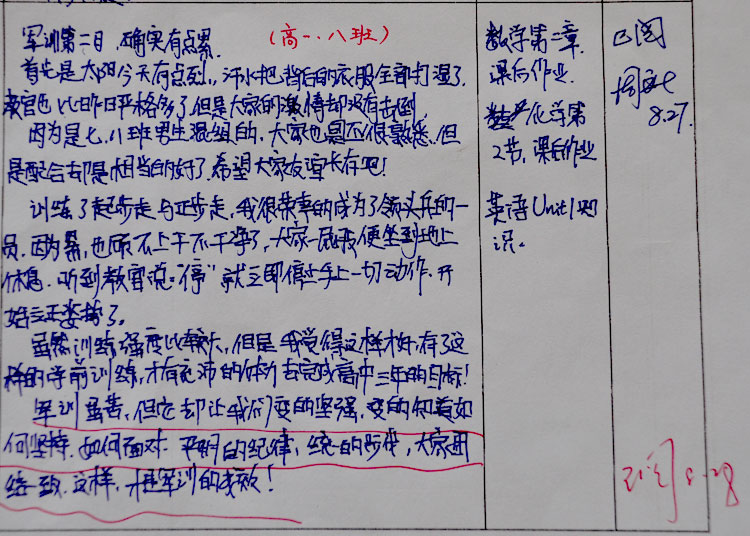 军训第二日,确实有点累.
(高一、八班)
首先是太阳今天有点烈,汗水把背后的衣服全部打湿了.
教官也比昨日严格多了,但是大家的激情却没有击倒
因为是七、八班男生混组的,大家也是不很熟悉,但
是配合却是相当的好了.希望大家友谊长存吧!
训练了起步走与正步走,我很荣幸的成为了领头兵的一
员.因为累,也顾不上干不干净了,大家一屁股便坐到地上
休息.听到教官说"停"就立即停止手上一切动作,开
始立正姿势了。
虽然训练强度比较大,但是我觉得这样才好,有了这
样的学前训练,才有充沛的体力去完成高中三年的目标!
军训虽苦,但它却让我们变的坚强,变的知道如
何坚持.如何面对.严明的纪律,统一的步伐,大家团
结一致.这样,才是军训的成效!
数学第一章
课后作业.
化学第
2节,课后作业
英语Unit1知
识。
已阅
8.27.
已阅 8.28